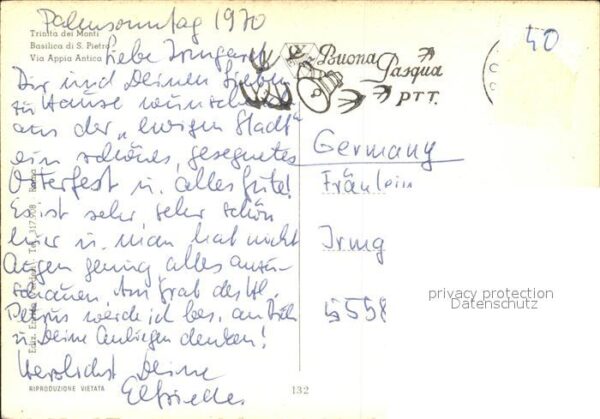 Palmsonntag 1970
Trinità dei Monti
Basilica di S. Pietro
Via Appia Antica
Liebe Irmgard
Dir und Deinen Lieben
zu Hause wünsche
aus der „ewigen Stadt"
ein schönes, gesegnetes
Osterfest u. alles Gute!
Es ist sehr sehr schön
hier u. man hat nicht
Augen genug alles anzu-
schauen. Am Grab des Hl.
Petrus werde ich bes. an Dich
u. Deine Anliegen denken!
Herzlichst Deine
Elfriede
RIPRODUZIONE VIETATA
132
Buona
Pasqua
PTT.
40
Germany
Fräulein
Irmg
5558
privacy protection
Datenschutz